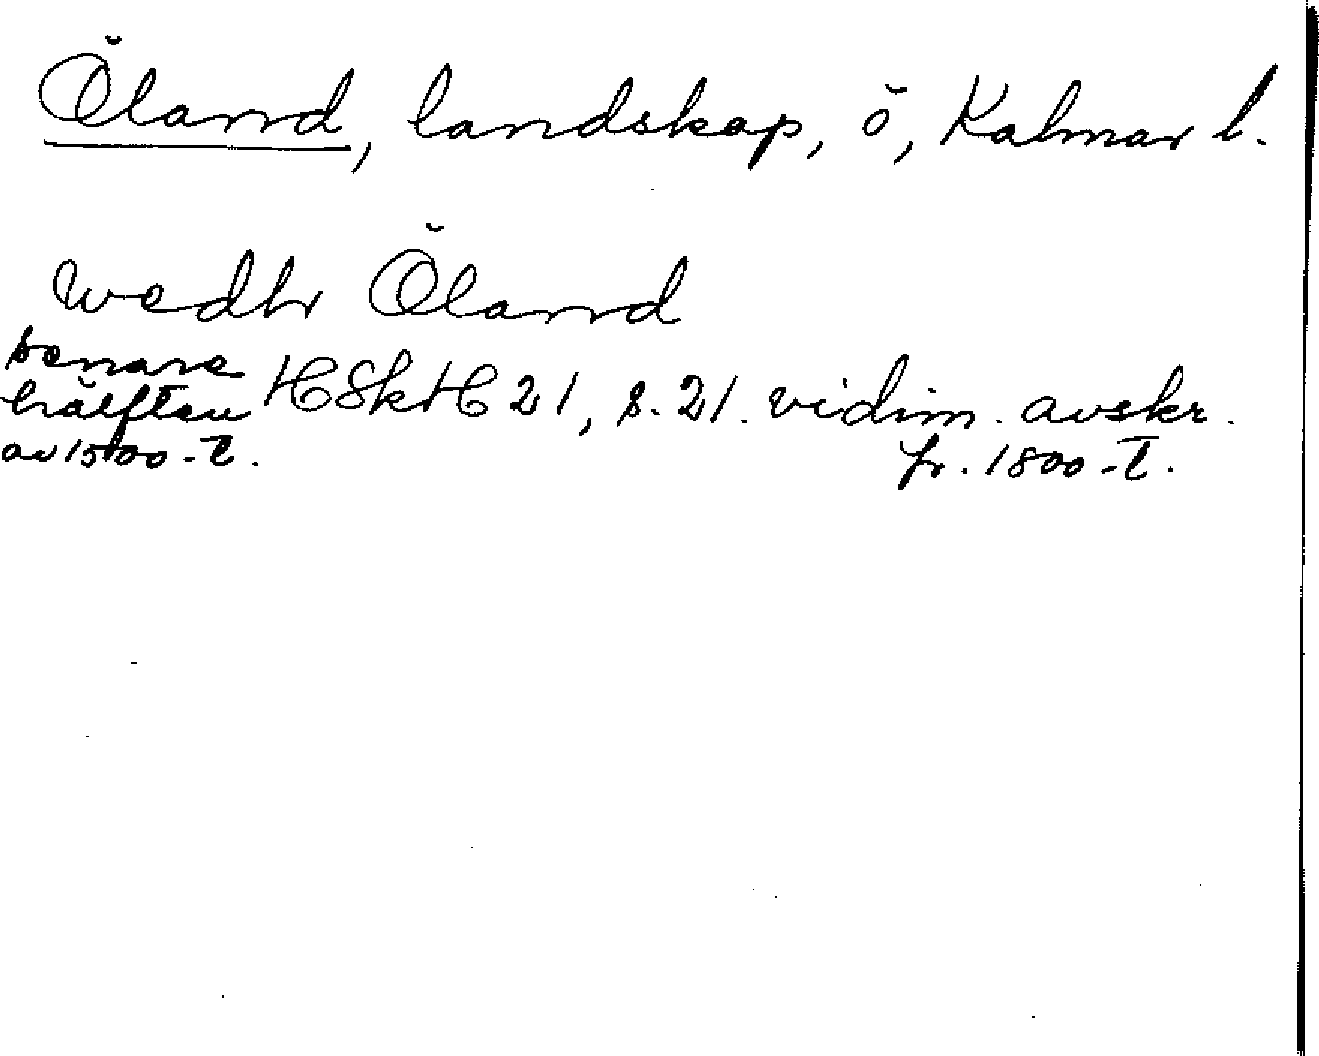 Öland, landskap, ö, Kalmar l.
wedhr Öland
senare
hälften HSkH 21, s. 21. vidim. avskr.
av 1500-t. fr. 1800-t.